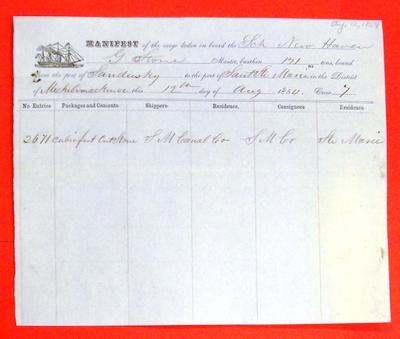 Aug. 12, 1854
MANIFEST of the cargo taken in board the Sch New Haven
G Stone Master, burthen 171 tons, bound
from the port of Sandusky to the port of Sault Ste Marie in the District
of this 12th day of Aug 1854. Crew 7
No. Entries Packages and Contents. Shippers. Residence. Consignees. Residence
2671 cubic feet Cut Stone S M Canal Co S M Co Ste Marie